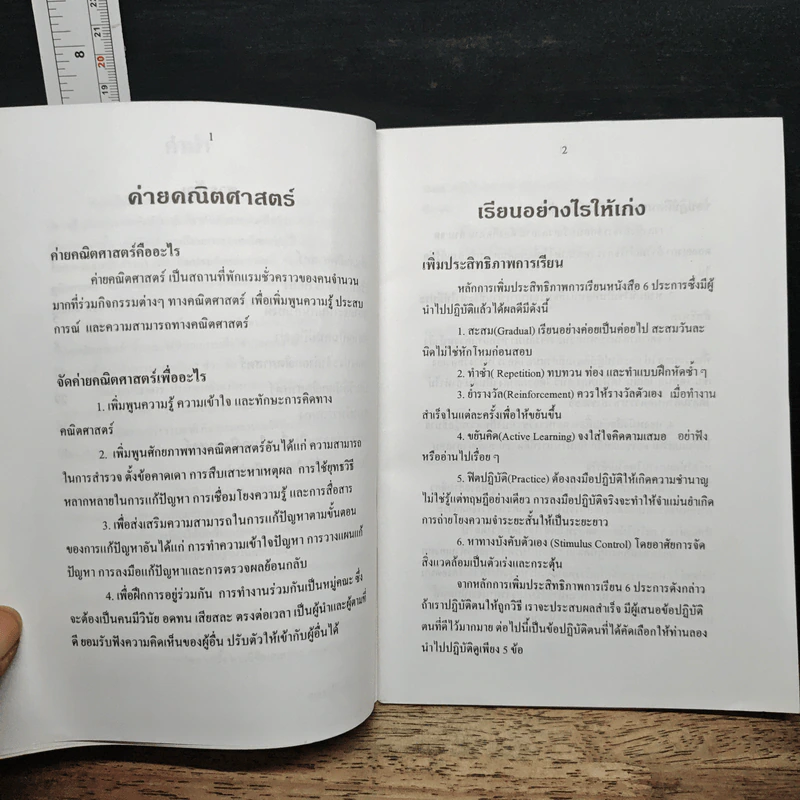 8
21
20
19
1
ค่ายคณิตศาสตร์
ค่ายคณิตศาสตร์คืออะไร
ค่ายคณิตศาสตร์ เป็นสถานที่พักแรมชั่วคราวของคนจำนวน
มากที่ร่วมกิจกรรมต่างๆ ทางคณิตศาสตร์ เพื่อเพิ่มพูนความรู้ ประสบ
การณ์ และความสามารถทางคณิตศาสตร์
จัดค่ายคณิตศาสตร์เพื่ออะไร
1. เพิ่มพูนความรู้ ความเข้าใจ และทักษะการคิดทาง
คณิตศาสตร์
2. เพิ่มพูนศักยภาพทางคณิตศาสตร์อันได้แก่ ความสามารถ
ในการสำรวจ ตั้งข้อคาดเดา การสืบเสาะหาเหตุผล การใช้ยุทธวิธี
หลากหลายในการแก้ปัญหา การเชื่อมโยงความรู้ และการสื่อสาร
3. เพื่อส่งเสริมความสามารถในการแก้ปัญหาตามขั้นตอน
ของการแก้ปัญหาอันได้แก่ การทำความเข้าใจปัญหา การวางแผนแก้
ปัญหา การลงมือแก้ปัญหาและการตรวจผลย้อนกลับ
4. เพื่อฝึกการอยู่ร่วมกัน การทำงานร่วมกันเป็นหมู่คณะ ซึ่ง
จะต้องเป็นคนมีวินัย อดทน เสียสละ ตรงต่อเวลา เป็นผู้นำและผู้ตามที่
ดี ยอมรับฟังความคิดเห็นของผู้อื่น ปรับตัวให้เข้ากับผู้อื่นได้
2
เรียนอย่างไรให้เก่ง
เพิ่มประสิทธิภาพการเรียน
หลักการเพิ่มประสิทธิภาพการเรียนหนังสือ 6 ประการซึ่งมีผู้
นำไปปฏิบัติแล้วได้ผลดีมีดังนี้
1. สะสม(Gradual) เรียนอย่างค่อยเป็นค่อยไป สะสมวันละ
นิดไม่ใช่หักโหมก่อนสอบ
2. ทำซ้ำ( Repetition) ทบทวน ท่อง และทำแบบฝึกหัดซ้ำ ๆ
3. ย้ำรางวัล(Reinforcement) ควรให้รางวัลตัวเอง เมื่อทำงาน
สำเร็จในแต่ละครั้งเพื่อให้ขยันขึ้น
4. ขยันคิด(Active Learning) จงใส่ใจคิดตามเสมอ อย่าฟัง
หรืออ่านไปเรื่อย ๆ
5. ฟิตปฏิบัติ(Practice) ต้องลงมือปฏิบัติให้เกิดความชำนาญ
ไม่ใช่รู้แต่ทฤษฎีอย่างเดียว การลงมือปฏิบัติจริงจะทำให้จำแม่นยำเกิด
การถ่ายโยงความจำระยะสั้นให้เป็นระยะยาว
6. หาทางบังคับตัวเอง (Stimulus Control) โดยอาศัยการจัด
สิ่งแวดล้อมเป็นตัวเร่งและกระตุ้น
จากหลักการเพิ่มประสิทธิภาพการเรียน 6 ประการดังกล่าว
ถ้าเราปฏิบัติตนให้ถูกวิธี เราจะประสบผลสำเร็จ มีผู้เสนอข้อปฏิบัติ
ตนที่ดีไว้มากมาย ต่อไปนี้เป็นข้อปฏิบัติตนที่ได้คัดเลือกให้ท่านลอง
นำไปปฏิบัติดูเพียง 5 ข้อ